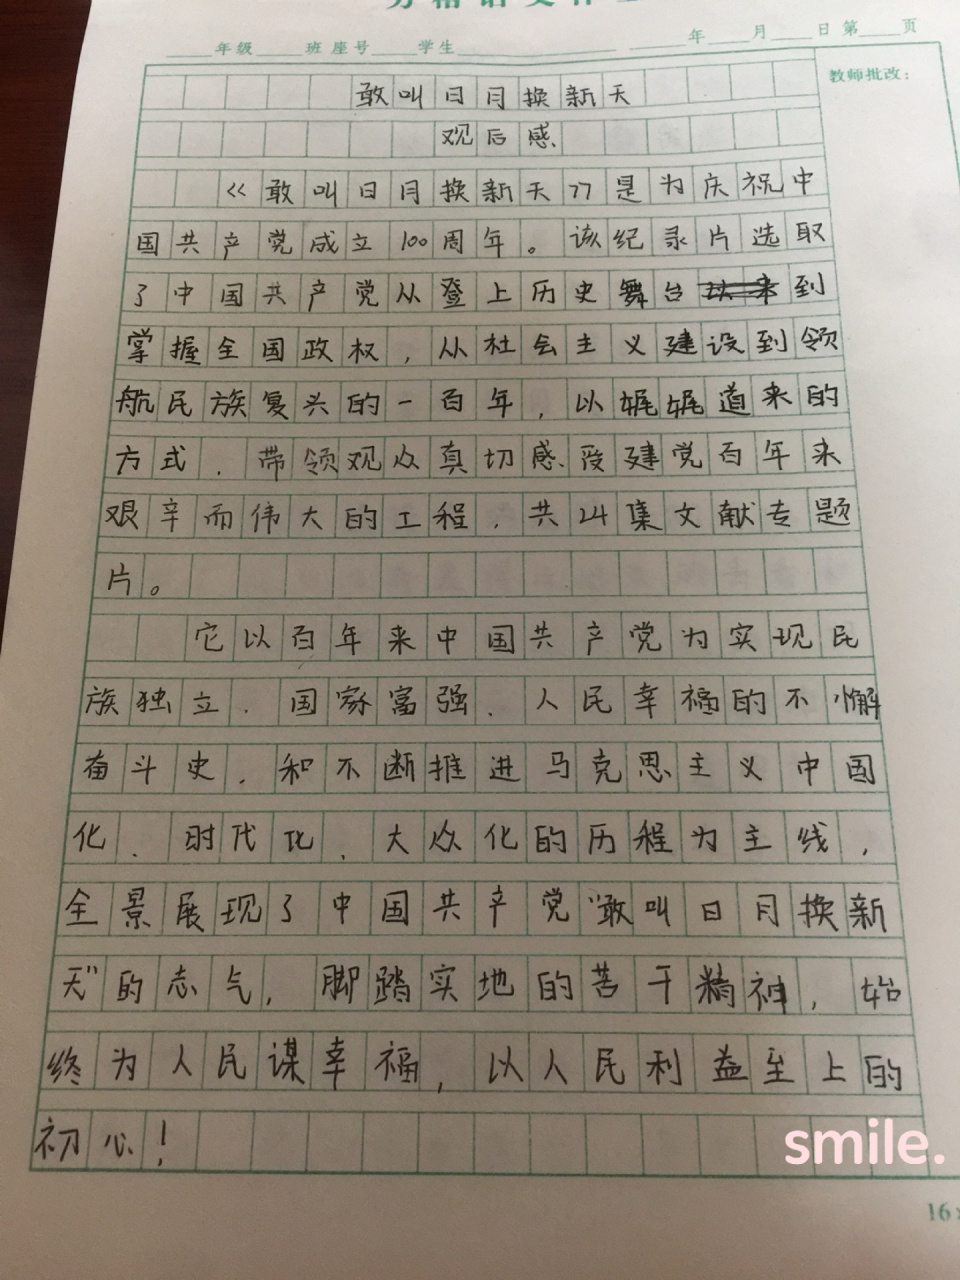 年级 班 座号 学生 年 月 日 第 页
教师批改：
敢叫日月换新天
观后感
《敢叫日月换新天》是为庆祝中
国共产党成立100周年。该纪录片选取
了中国共产党从登上历史舞台到
掌握全国政权，从社会主义建设到领
航民族复兴的一百年，以娓娓道来的
方式、带领观众真切感受建党百年来
艰辛而伟大的工程，共24集文献专题
片。
它以百年来中国共产党为实现民
族独立、国家富强、人民幸福的不懈
奋斗史，和不断推进马克思主义中国
化、时代化、大众化的历程为主线，
全景展现了中国共产党“敢叫日月换新
天”的志气，脚踏实地的苦干精神，始
终为人民谋幸福，以人民利益至上的
初心！
smile.